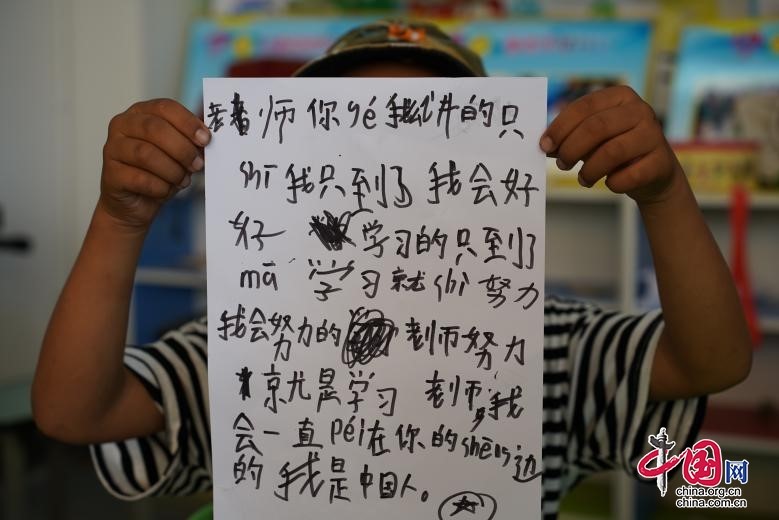 老师你gé我的只
shī我只到了 我会好
好 学习的只到了
mā 学习就shì努力
我会努力的 老师努力
就是学习 老师,我
会一直péi在你的shēng边
的 我是中国人。
中国网
china.org.cn
china.com.cn